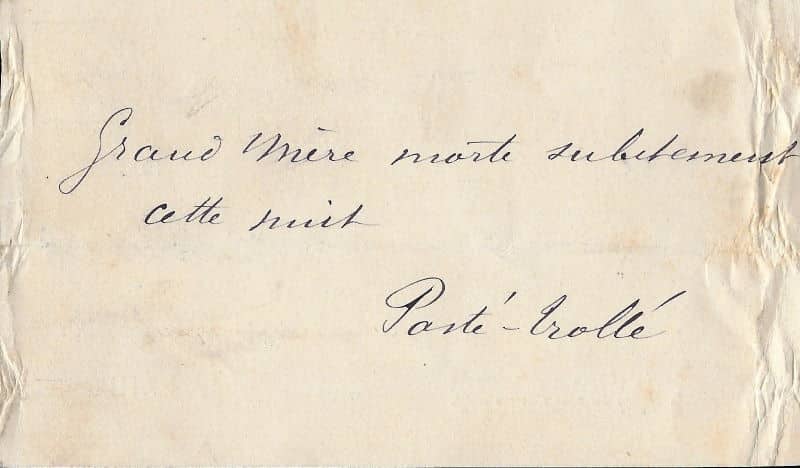 Grand Mère morte subitement
cette nuit
Pasté-Trollé